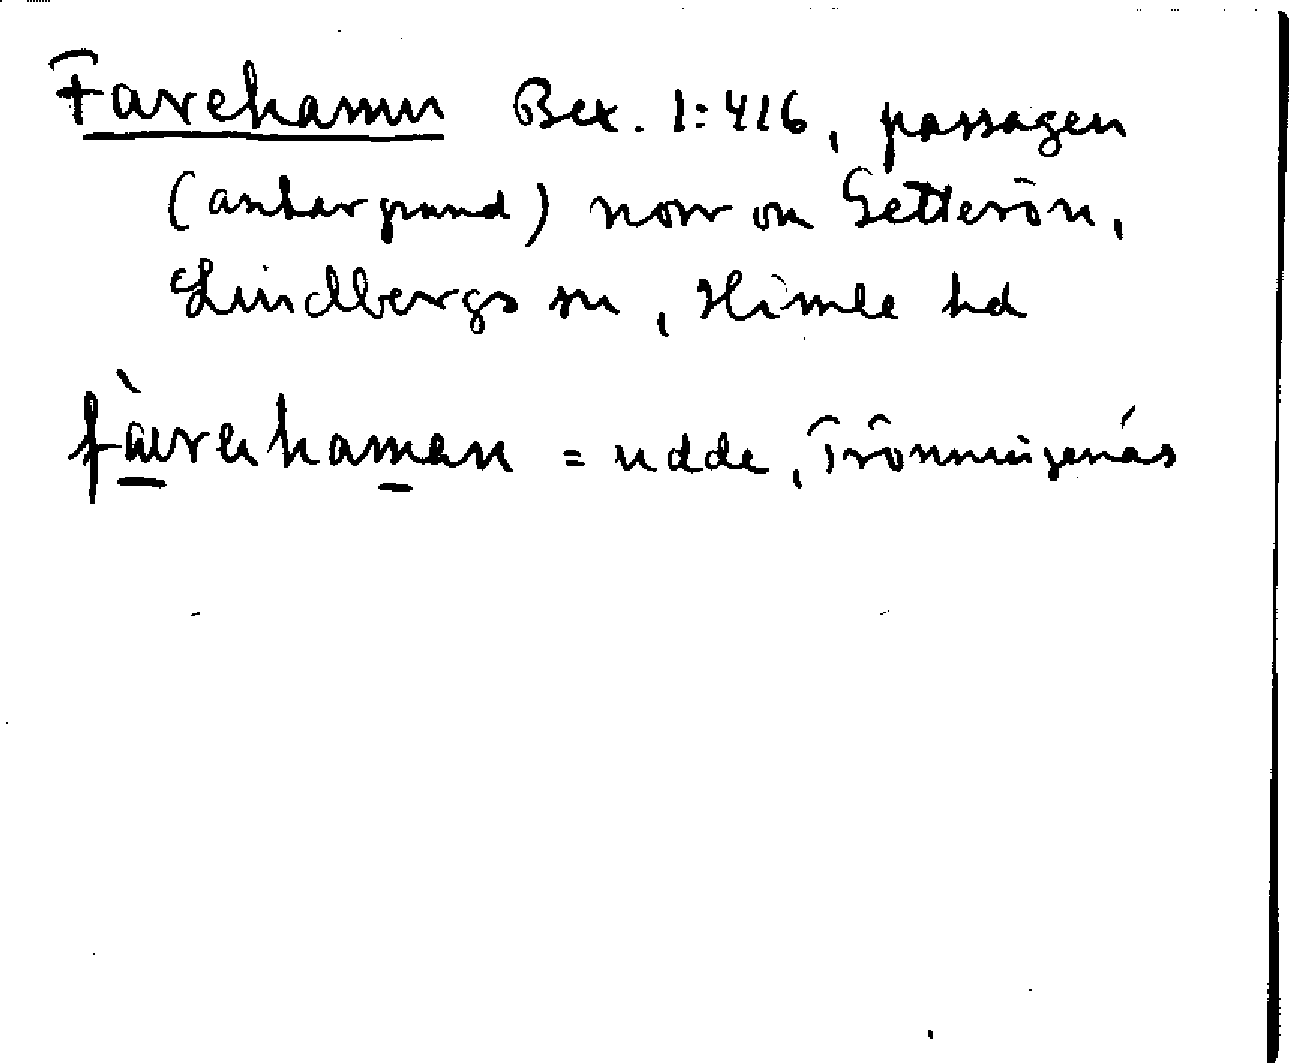 Farehamn Bex. 1:416, passagen
(ankargrund) norr om Getterön,
Lindbergs sn, Himle hd
= udde, Trönningenäs